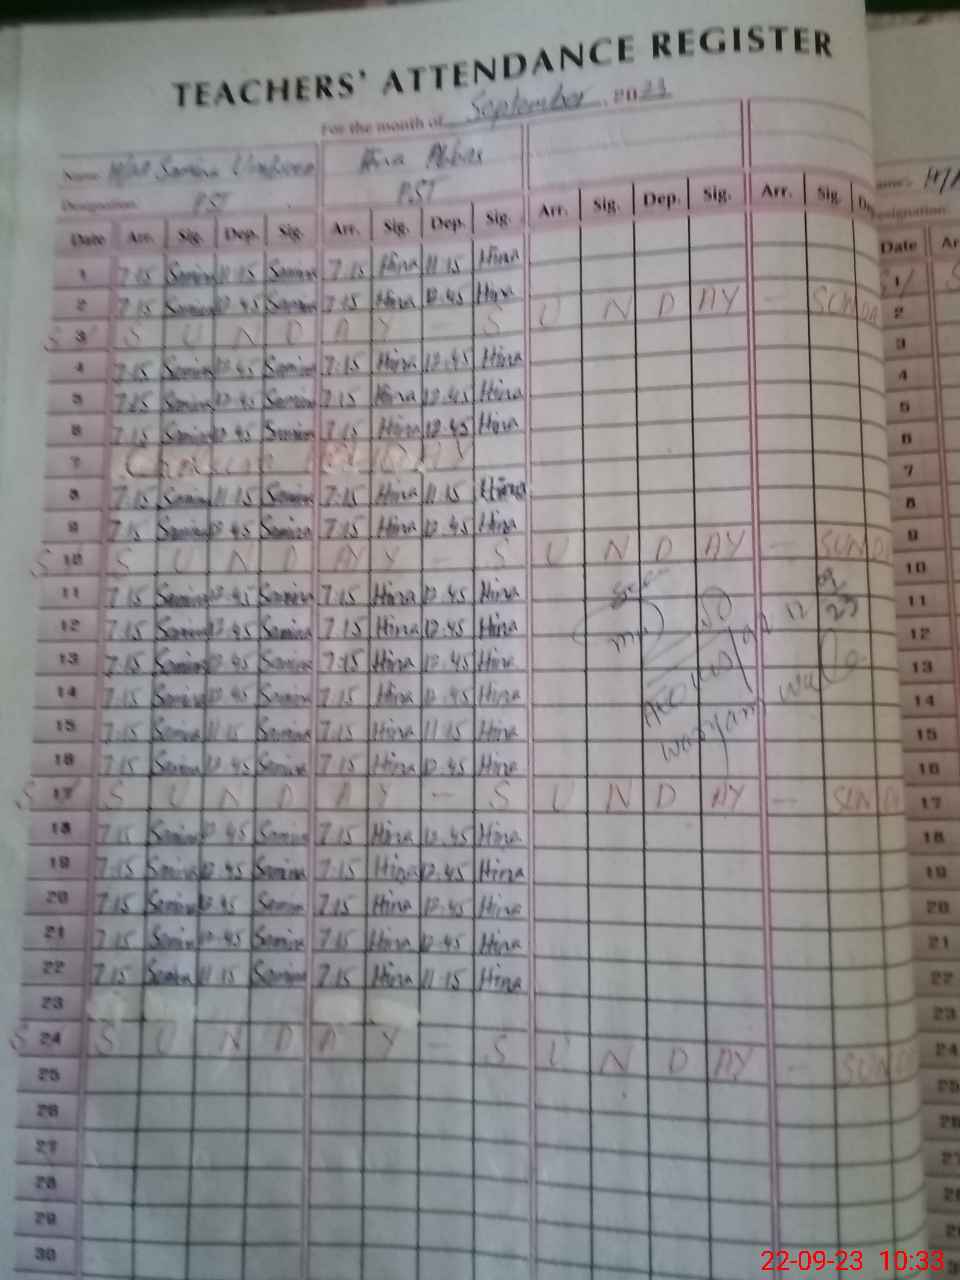 TEACHERS' ATTENDANCE REGISTER
For the month of September 2023
Name Samina Hina Abbas
Designation PST PST
Date Arr. Sig. Dep. Sig. Arr. Sig. Dep. Sig. Arr. Sig. Dep. Sig. Arr. Sig. Date
1 7:15 Samina 11:15 Samina 7:15 Hina 11:15 Hina 1
2 7:15 Samina 12.45 Samina 7:15 Hina 12.45 Hina 2
S 3 S U N D A Y - S U N D AY - SUNDA 3
4 7:15 Samina 12.45 Samina 7:15 Hina 12.45 Hina 4
5 7:15 Samina 12.45 Samina 7:15 Hina 12.45 Hina 5
6 7:15 Samina 12.45 Samina 7:15 Hina 12.45 Hina 6
7 7
8 7:15 Samina 11:15 Samina 7:15 Hina 11:15 Hina 8
9 7:15 Samina 12.45 Samina 7:15 Hina 12.45 Hina 9
S 10 S U N D AY Y - S U N D AY - SUND 10
11 7:15 Samina 12.45 Samina 7:15 Hina 12.45 Hina 11
12 7:15 Samina 12.45 Samina 7:15 Hina 12.45 Hina 12
13 7:15 Samina 12.45 Samina 7:15 Hina 12.45 Hina 13
14 7:15 Samina 12.45 Samina 7:15 Hina 12.45 Hina 14
15 7:15 Samina 11:15 Samina 7:15 Hina 11:15 Hina 15
16 7:15 Samina 12.45 Samina 7:15 Hina 12.45 Hina 16
S 17 S U N D A Y - S U N D AY - SUN 17
18 7:15 Samina 12.45 Samina 7:15 Hina 12.45 Hina 18
19 7:15 Samina 12.45 Samina 7:15 Hina 12.45 Hina 19
20 7:15 Samina 12.45 Samina 7:15 Hina 12.45 Hina 20
21 7:15 Samina 12.45 Samina 7:15 Hina 12.45 Hina 21
22 7:15 Samina 11:15 Samina 7:15 Hina 11:15 Hina 22
23 23
S 24 S U N D A Y - S U N D AY - SUN 24
25 25
26
27
28
29
30
22-09-23 10:33